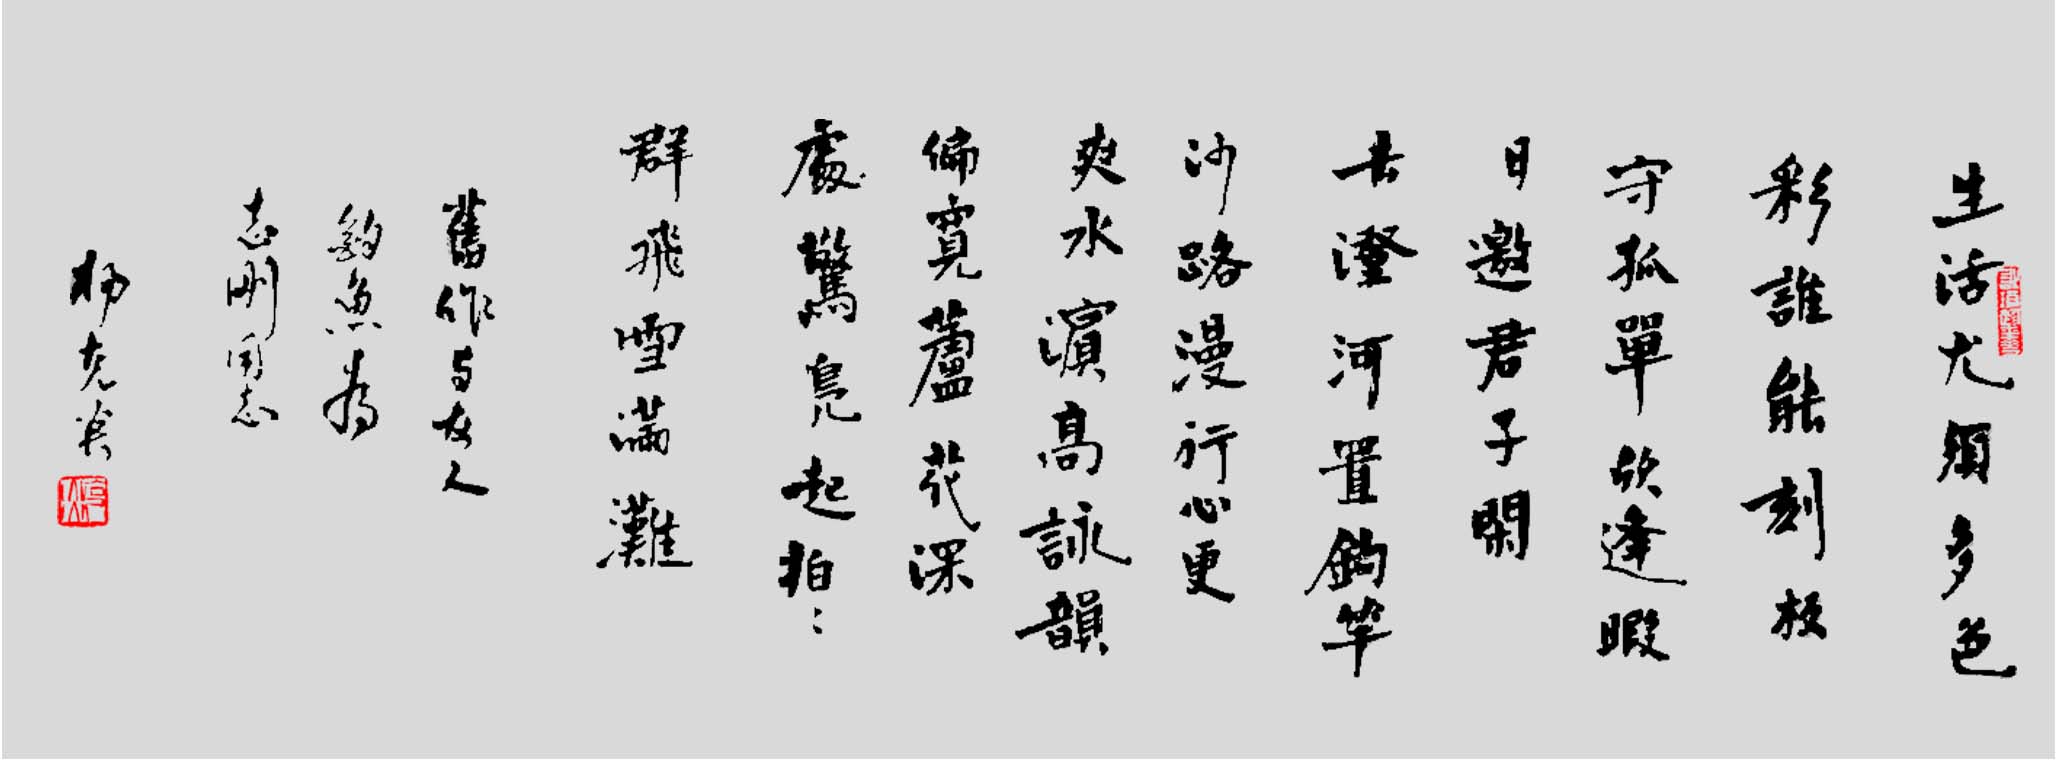 生活尤須多色
彩誰能刻板
守孤單欣逢暇
日邀君子閑
去澄河置鈎竿
沙路漫行心更
爽水濱高詠韻
偏寬蘆花深
處驚鳧起拍〻
群飛雪滿灘
舊作与友人
釣魚為
志剛同志